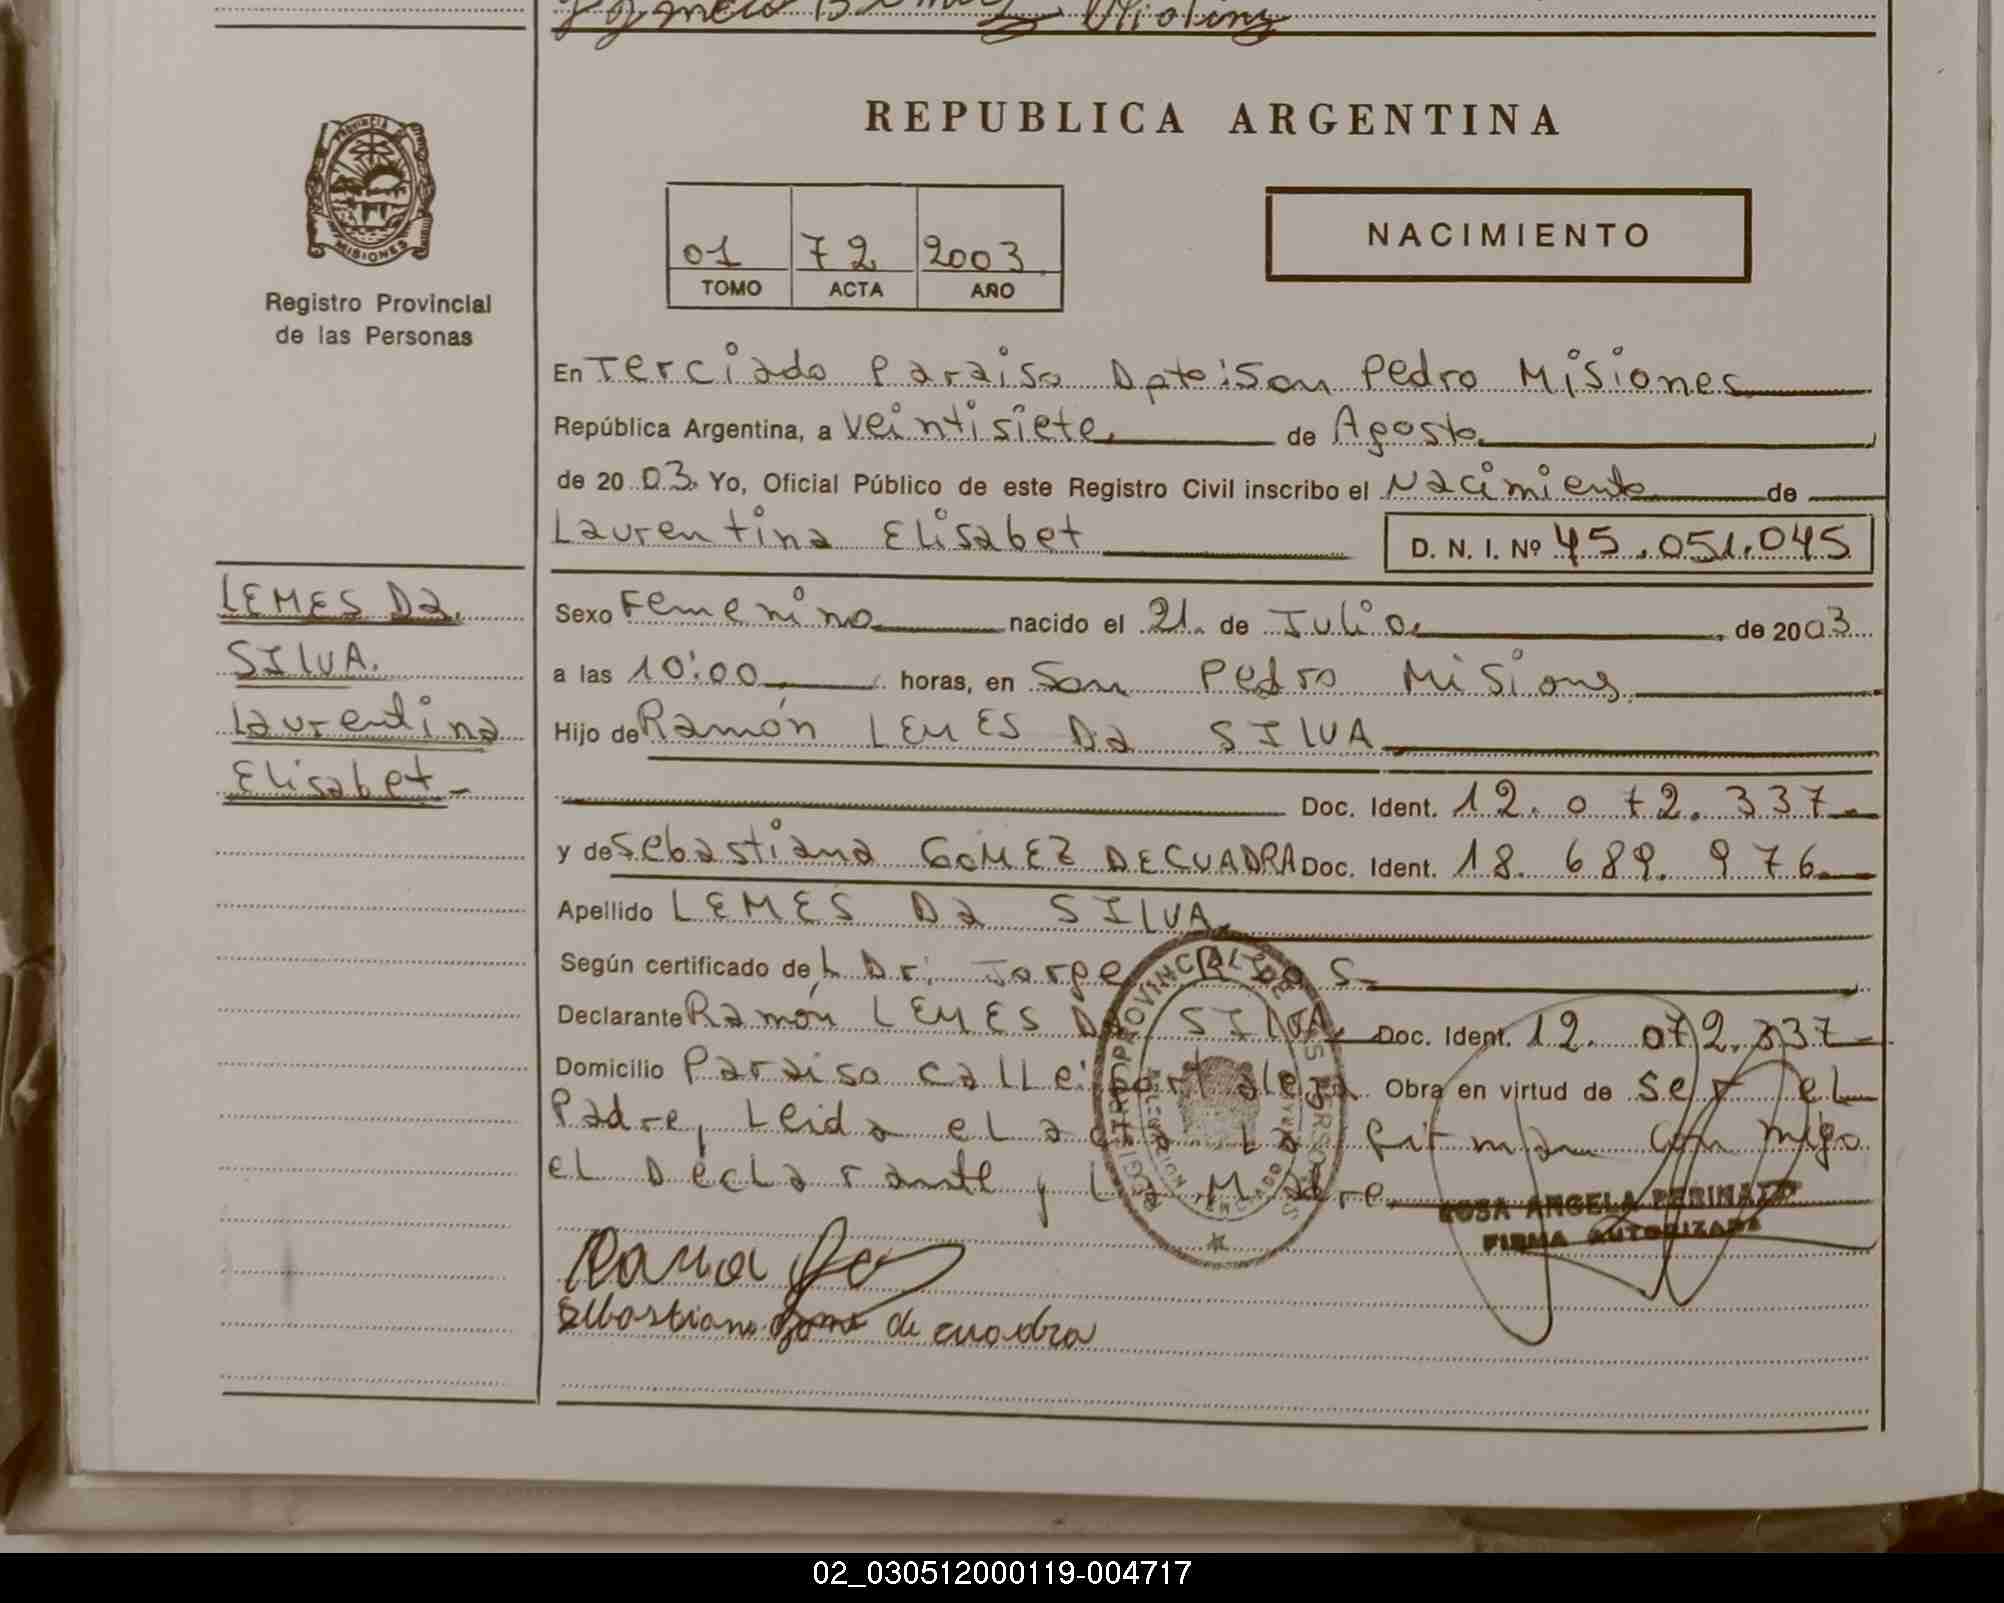 Molina
REPUBLICA ARGENTINA
PROVINCIA DE
MISIONES
Registro Provincial
de las Personas
01 72 2003
TOMO ACTA AÑO
NACIMIENTO
En Terciado Paraiso Dpto: San Pedro Misiones
República Argentina, a veintisiete de Agosto
de 2003. Yo, Oficial Público de este Registro Civil inscribo el Nacimiento de
Laurentina Elisabet D. N. I. Nº 45.051.045
LEMES Da
SILVA.
Laurentina
Elisabet-
Sexo Femenino nacido el 21. de Julio. de 2003
a las 10:00 horas, en San Pedro Misiones
Hijo de Ramón LEMES Da SILVA
Doc. Ident. 12.072.337
y de Sebastiana GOMEZ DECUADRA Doc. Ident. 18.689.976
Apellido LEMES Da SILVA
Según certificado de L Dr: Jorge
Declarante Ramón LEMES Da SILVA Doc. Ident. 12.072.337
Domicilio Paraiso calle: Fortaleza Obra en virtud de ser el
Padre, Leida el acta La firman con migo
el Declarante y La Madre.
REGISTRO PROVINCIAL DE LAS PERSONAS
ROSA ANGELA PERINATO
FIRMA AUTORIZADA
Sebastiana Gomes de cuadra
02_030512000119-004717